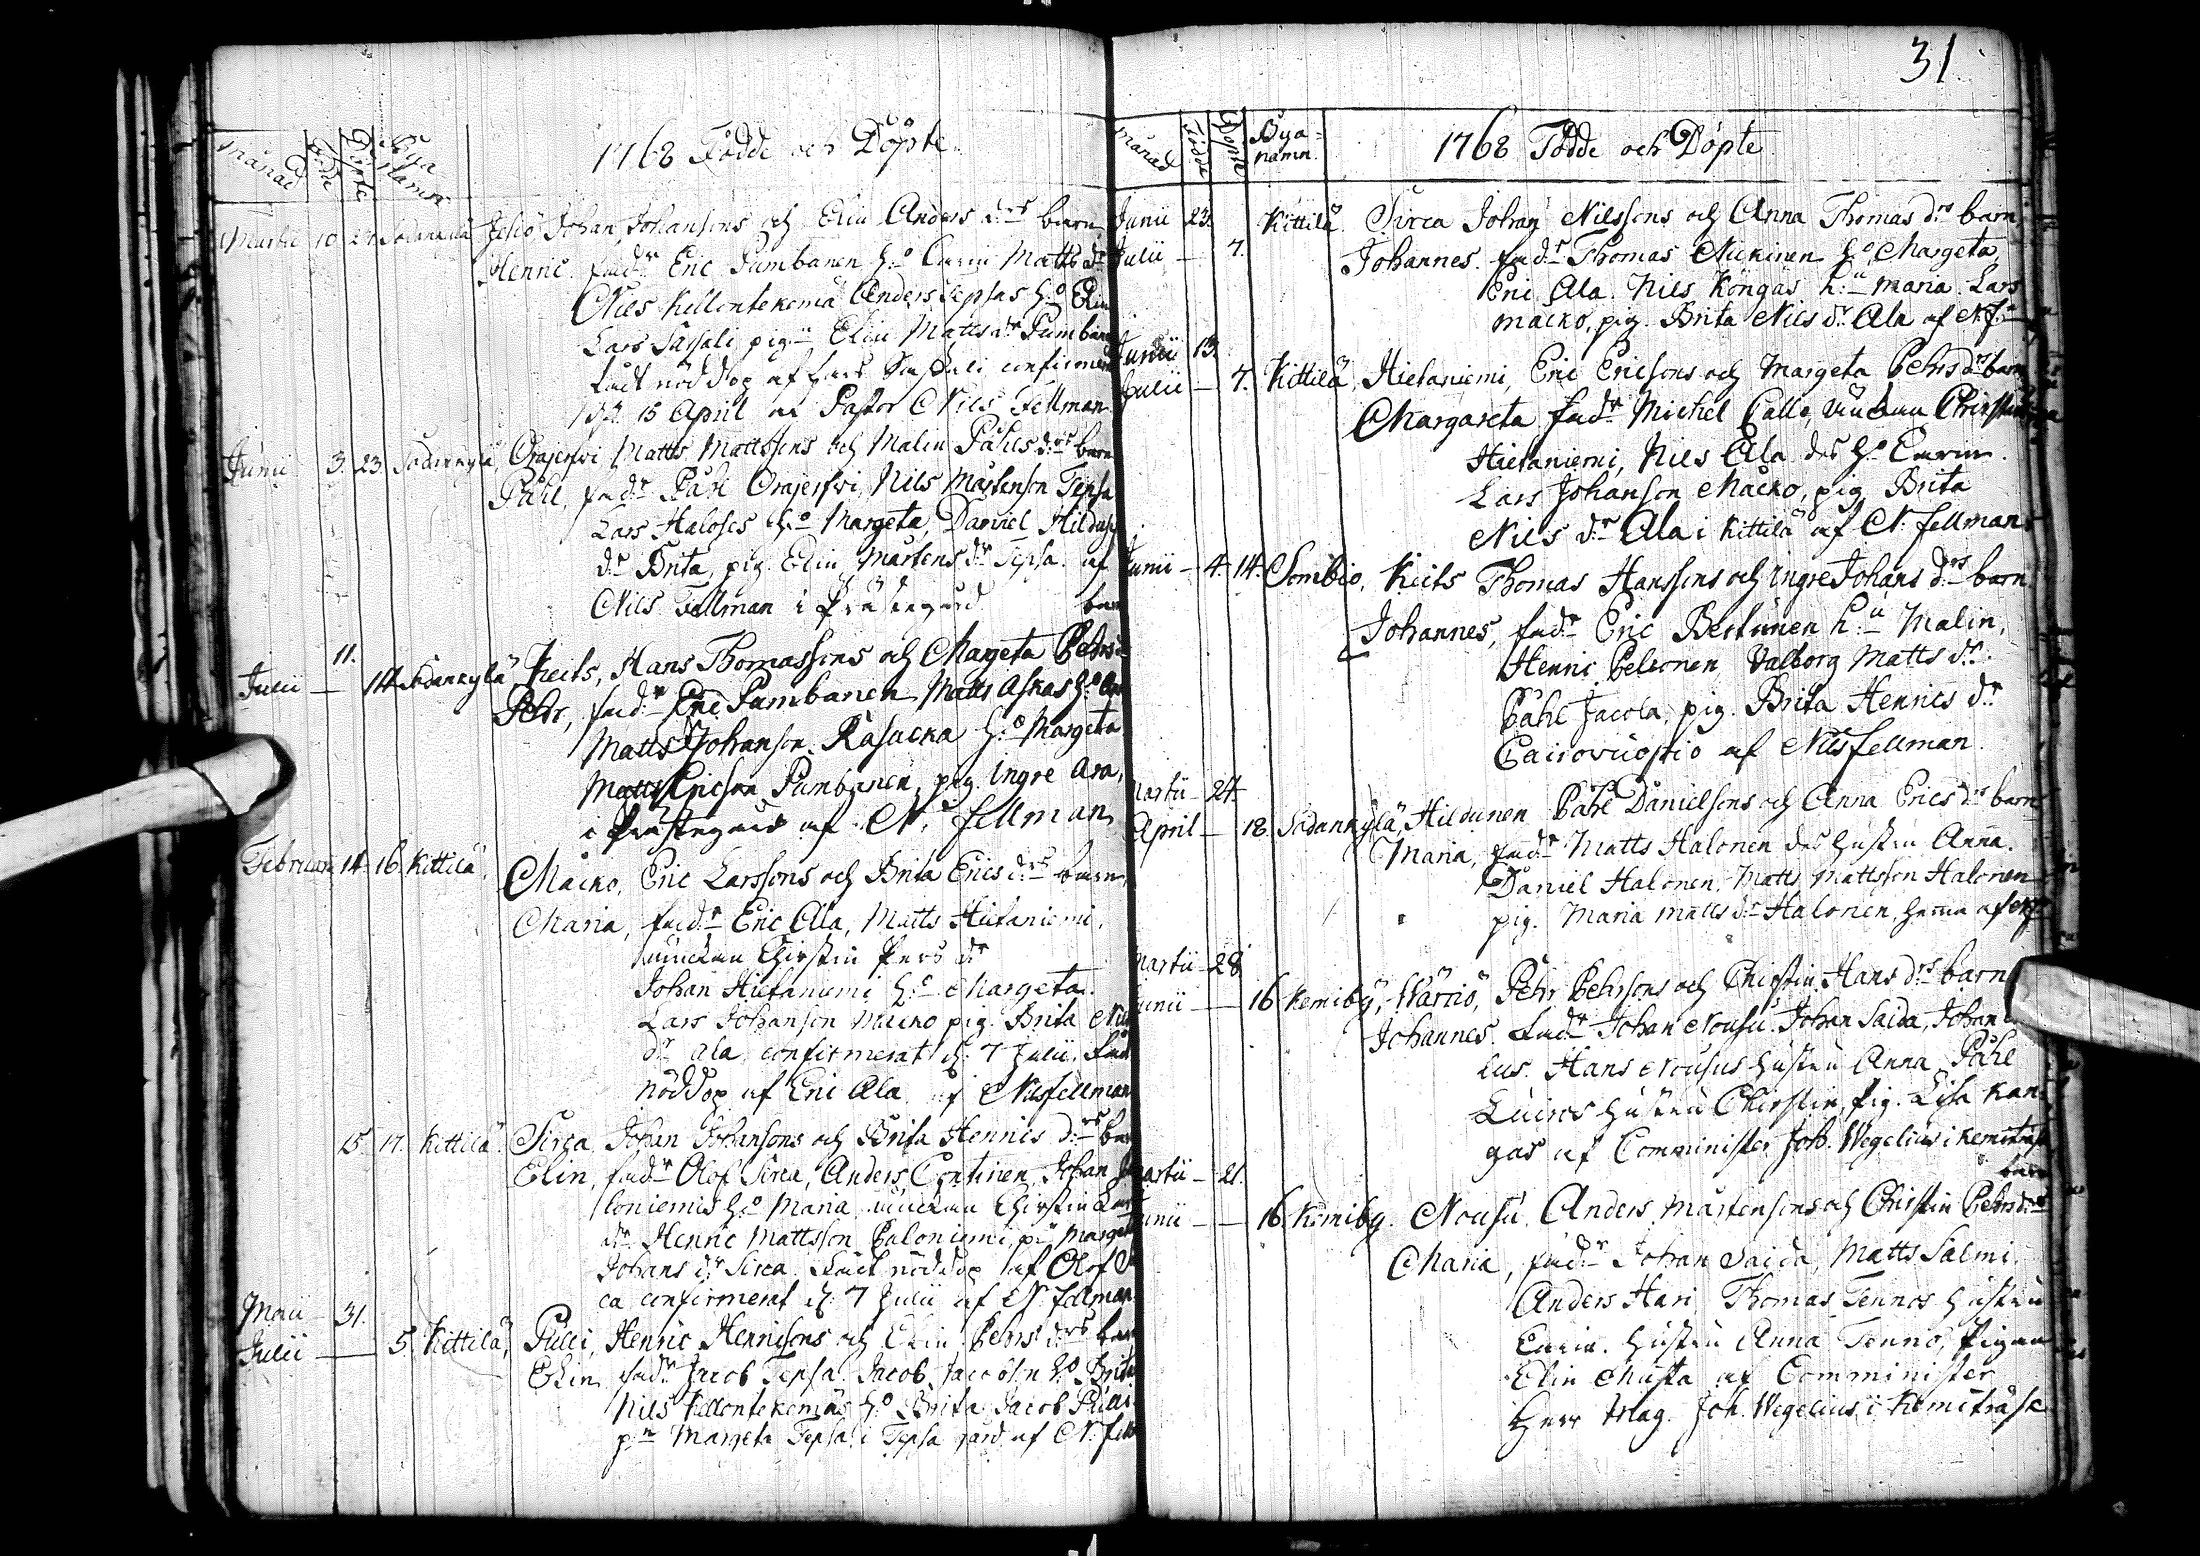 Månad Födde Döpte Bya Namn 1768 Födde och Döpte.
Martii 10 24 Sodankylä Jesiö Johan Johansons och Elin Anders drs barn
Henric. fadr Eric Pumbanen ho Carin Matts dr
Nils Kellontekemä Anders Tepsas ho Elin
Lars Sassali pign Elin Matts dr Pumban
fådt nöddop af Lars Sassali confirme
15 April af Pastor Nils Fellman
Junii 3. 23. Sodankylä, Orajerfwi Matts Mattssons och Malin Påhls drs barn
Påhl, fadr Påhl Orajerfwi, Nils Mårtenson Tepsa
Lars Haloses ho Margeta, Daniel Hildu
dr Brita, pig. Elin Mårtens dr Tepsa. af
Nils Fellman i Prästegård
barn
11.
Julii — 14. Sodankylä Keits, Hans Thomassons och Margeta Pehrs
Pehr, fadr Eric Pumbanen Matts Askas ho
Matts Johanson. Räsucka ho Margeta
Matts Ericson Pumbanen, pig Ingre Ara,
i Prästegård af N. Fellman
Februarii 14. 16. Kittilä, Macko, Eric Larssons och Brita Erics drs barn
Maria, fadr Eric Ala, Matts Hietaniemi,
änckan Chirstin Pers dr
Johan Hietaniemi ho Margeta.
Lars Johanson Macko pig. Brita Nils
dr Ala, confirmerat d. 7 Julii, fådt
nöddop af Eric Ala af Nils Fellman
15. 17. Kittilä. Sirca, Johan Johansons och Brita Henrics drs bar
Elin, fadr Olof Sirca, Anders Continen, Johan
loniemis ho Maria änckan Chirstin Lars
dr Henric Mattsson Paloniemi, pig Marget
Johans dr Sirca. fådt nöddop af Olof
ca confirmerat d. 7 Julii af N. Fellman
Maii 31.
Julii — 5. Kittilä, Pulli, Henric Henricsons och Elin Pehrs drs bar
Elin fadr Jacob Tepsa. Jacob Jacobsn ho Brita
Nils Kellontekemäs ho Brita Jacob Pulli
pn Margeta Tepsa i Tepsa gård af N. Fell
31
Månad Födde Döpte Bya-namn. 1768 Födde och Döpte
Junii 23. Kittilä. Sirca Johan Nilssons och Anna Thomas drs barn
Julii — 7. Johannes. fadr Thomas Nickinen ho Margeta,
Eric Ala. Nils Köngäs hu Maria. Lars
Macko, pig. Brita Nils dr Ala af N. F.
Junii 13.
Julii — 7. Kittilä, Hietaniemi, Eric Ericsons och Margeta Pehrs drs barn
Margareta fadr Michel Palle, änckan Chirstin
Hietaniemi, Nils Ala des ho Carin.
Lars Johanson Macko, pig Brita
Nils dr Ala i Kittilä af N. Fellman
Junii — 4. 14. Sombio, Keits Thomas Hanssons och Ingre Johans drs barn
Johannes, fadr Eric Bertunen hu Malin,
Henric Pelkonen, Valborg Matts dr
Påhl Jacola, pig. Brita Henrics dr
Cairovuopio af Nils Fellman.
Martii — 24.
April — 18. Sodankylä, Hildunen Påhl Danielsons och Anna Erics drs barn
Maria, fadr Matts Halonen des hustru Anna.
Daniel Halonen, Matts Mattsson Halonen
pig. Maria Matts dr Halonen, hema af N. F.
Martii — 28
Junii — 16 Kemiby, Wärriö, Pehr Pehrsons och Chirstin Hans drs barn
Johannes. fadr Johan Nousu. Johan Saida, Johan
lus. Hans Nousus hustru Anna Påhl
Luiros hustru Chirstin, Pig. Lisa Kan
gas af Comminister Joh. Wegelius i Kemiträsk
Martii — 21. barn
Junii — 16. Kemiby. Nousu Anders Mårtensons och Chirstin Pehrs drs
Maria, fadr Johan Saida, Matts Salmi.
Anders Hari Thomas Tennos hustru
Carin. hustru Anna Tenno, Pigan
Elin Musta af Comminister
Herr Mag. Joh. Wegelius i Kemiträsk